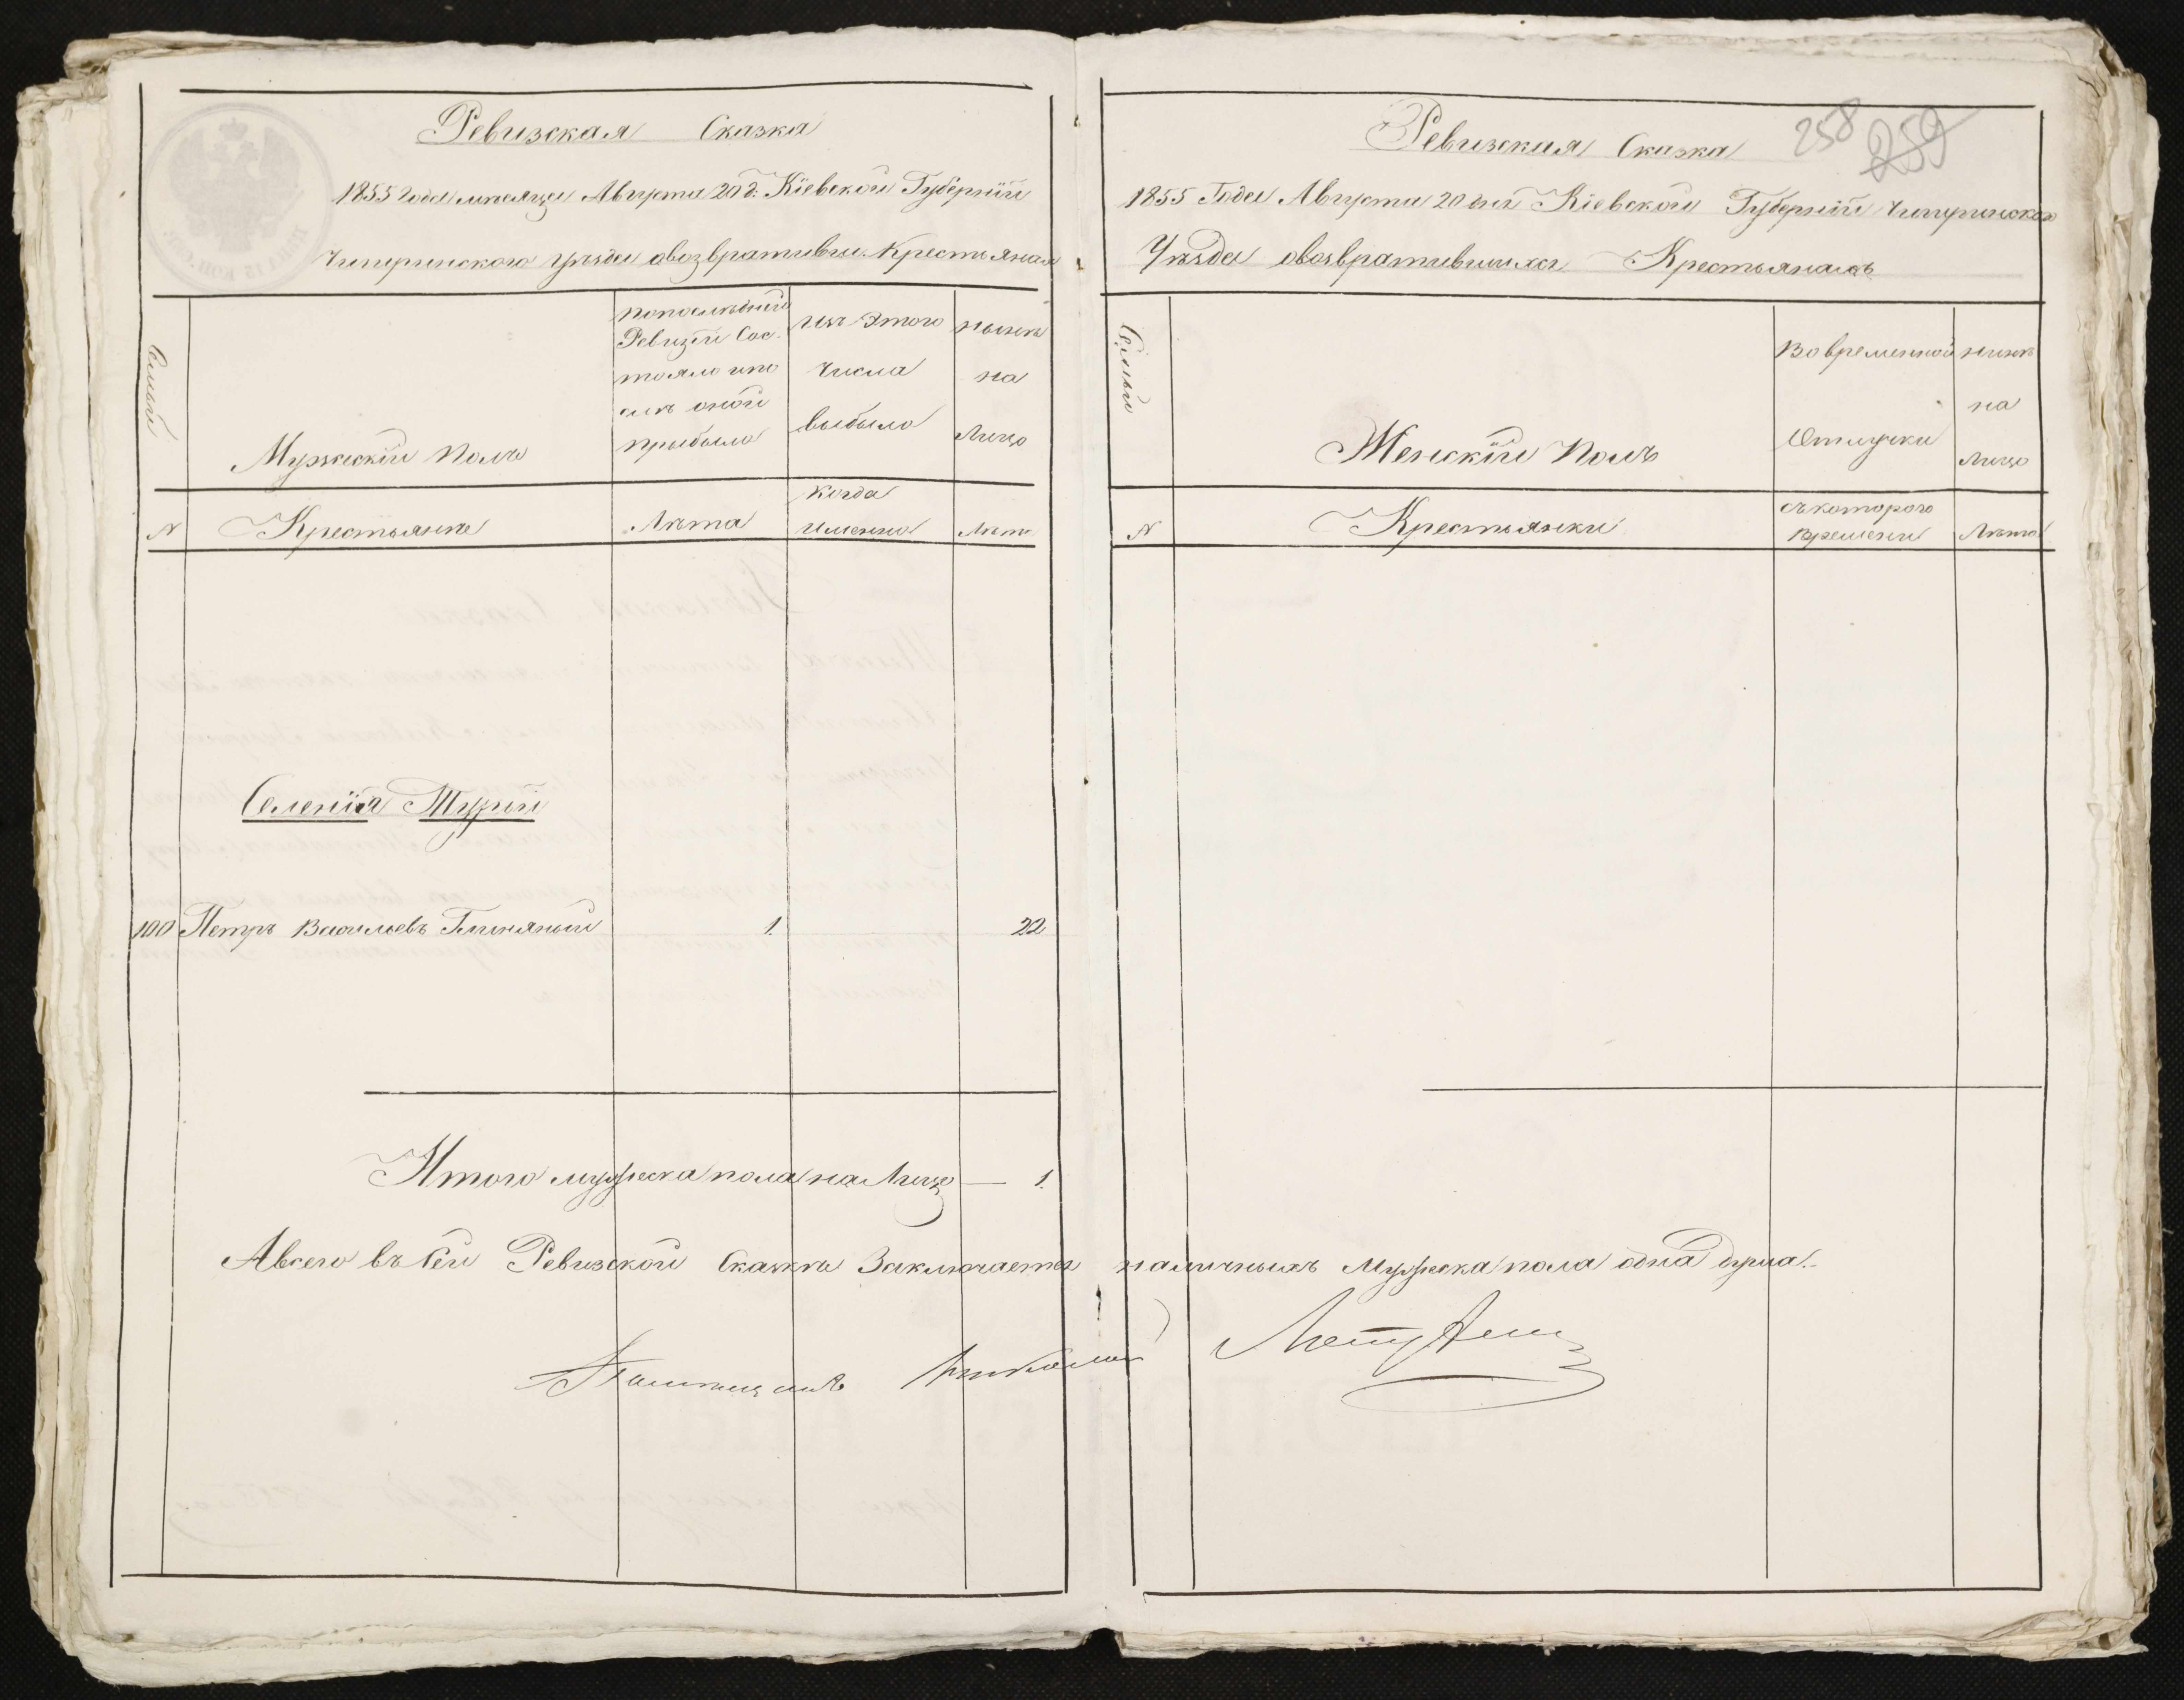 Ревизская Сказка
1855 года месяца Августа 20 д. Кіевской Губерніи
Чигиринского уезда овозвративши. Крестьянах
Семьи
Мужескій Полъ
попоследней
Ревизіи Сос-
тояло ипо
сле оной
прыбыло
Изъ Этого
числа
выбыло
ныне
на
Лицо
N
Крестьяне
Лета
когда
Именно
Лета
Селенія Турии
100 Петръ Васильевъ Глиняный 1. 22
Итого мужеска пола на Лицо — 1.
Авсего въ сей Ревизской Сказке Заключается
Помещикъ Николай
Ревизская Сказка
258
259
1855 Года Августа 20 дня Кіевской Губерніи Чигиринского
Уезда овозвратившихся Крестьянахъ
Семьи
Женскій Полъ
Вовременной
Отлучки
ныне
на
Лицо
N
Крестьянки
съкоторого
Времени
Лета
наличныхъ Мужеска пола одна душа.